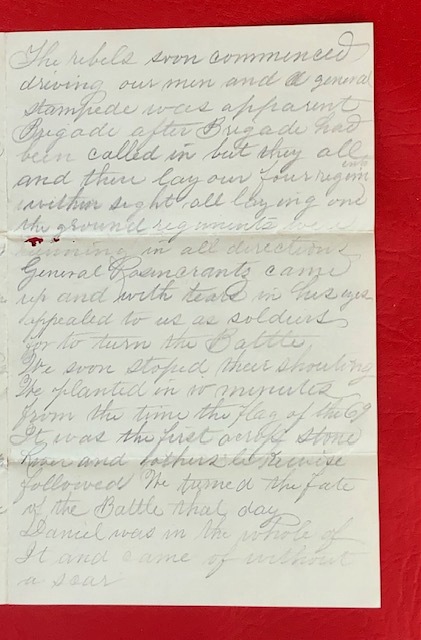 The rebels soon commenced
driving our men and a general
stampede was apparent
Brigade after Brigade had
been called in but they all
and there lay our four regim
ents
within sight all laying one
the ground regiments were
running in all directions
General Rosincrants came
up and with tears in his eyes
appealed to us as soldiers
for to turn the Battle
We soon stoped their shouting
We planted in 10 minutes
from the time the flag of the 69
It was the first across Stone
River and others likewise
followed We turned the fate
of the Battle that day
Daniel was in the whole of
It and came of without
a scar